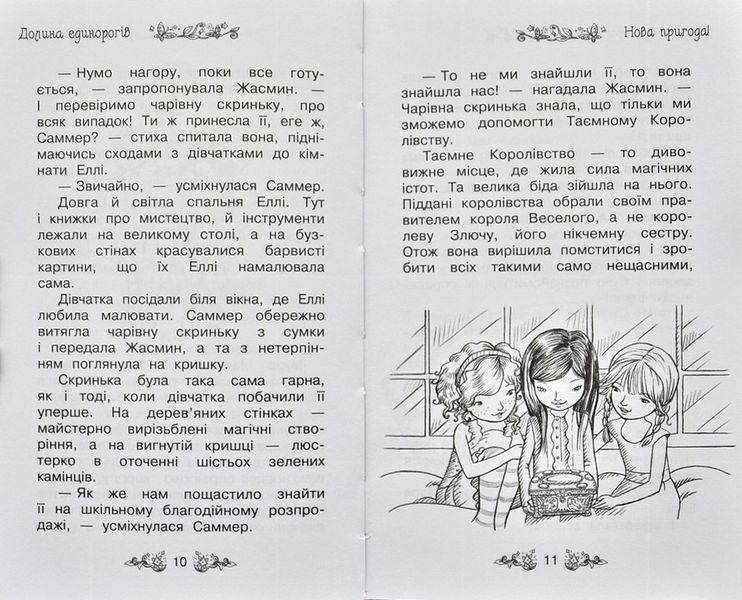 Долина единорогів
— Нумо нагору, поки все готу-
ється, — запропонувала Жасмин. —
І перевіримо чарівну скриньку, про
всяк випадок! Ти ж принесла її, еге ж,
Саммер? — стиха спитала вона, підні-
маючись сходами з дівчатками до кім-
нати Еллі.
— Звичайно, — усміхнулася Саммер.
Довга й світла спальня Еллі. Тут
і книжки про мистецтво, й інструменти
лежали на великому столі, а на буз-
кових стінах красувалися барвисті
картини, що їх Еллі намалювала
сама.
Дівчатка посідали біля вікна, де Еллі
любила малювати. Саммер обережно
витягла чарівну скриньку з сумки
і передала Жасмин, а та з нетерпін-
ням поглянула на кришку.
Скринька була така сама гарна,
як і тоді, коли дівчатка побачили її
уперше. На дерев’яних стінках —
майстерно вирізьблені магічні ство-
ріння, а на вигнутій кришці — люс-
терко в оточенні шістьох зелених
камінців.
— Як же нам пощастило знайти
її на шкільному благодійному розпро-
дажі, — усміхнулася Саммер.
10
Нова пригода!
— То не ми знайшли її, то вона
знайшла нас! — нагадала Жасмин. —
Чарівна скринька знала, що тільки ми
зможемо допомогти Таємному Коро-
лівству.
Таємне Королівство — то диво-
вижне місце, де жила сила магічних
істот. Та велика біда зійшла на нього.
Піддані королівства обрали своїм пра-
вителем короля Веселого, а не коро-
леву Злючу, його нікчемну сестру.
Отож вона вирішила помститися і зро-
бити всіх такими само нещасними,
11